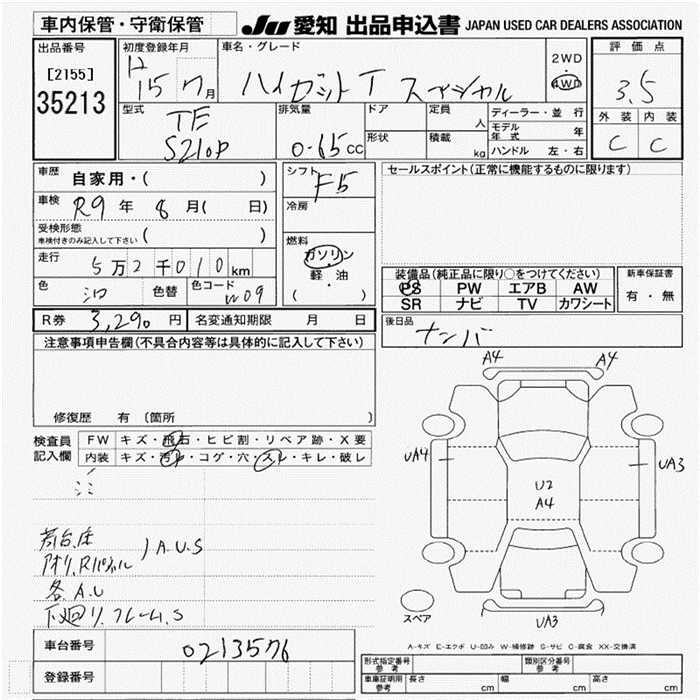 車内保管・守衛保管
JU 愛知 出品申込書 JAPAN USED CAR DEALERS ASSOCIATION
出品番号
[2155]
35213
初度登録年月
H 15 7月
車名・グレード
ハイゼットT スペシャル
2WD
・
4WD
評価点
3.5
外装 内装
C C
型式
TE
S210P
排気量
0.65cc
ドア
形状
定員 人
積載 kg
ディーラー・並 行
モデル年式 年
ハンドル 左・右
車歴
自家用・( )
車検
R9年 8月( 日)
受検形態
車検付きのみ記入して下さい ( )
走行
5万2千010km
色
シロ
色替
色コード
W09
シフト
F5
冷房
燃料
ガソリン
・
軽・油
( )
セールスポイント(正常に機能するものに限ります)
装備品(純正品に限り○をつけてください)
PS PW エアB AW
SR ナビ TV カワシート
新車保証書
有・無
R券 3,290円 名変通知期限 月 日
後日品
ナンバ
注意事項申告欄(不具合内容等は具体的に記入して下さい)
修復歴 有 〔箇所 〕
検査員
記入欄
FW キズ・飛石・ヒビ割・リペア跡・X要
内装 キズ・汚レ・コゲ・穴・スレ・キレ・破レ
荷台床
アオリ、Rパネル
A.U.S
各A.U
下廻り、フレームS
A4 A4
UA4
UA3
U2
A4
UA3
スペア
A-キズ E-エクボ U-凹み W-補修跡 S-サビ C-腐食 XX-交換済
車台番号
0213576
登録番号
形式指定番号
参考
類別区分番号
参考
車庫証明用
参考
長さ cm
幅 cm
高さ cm